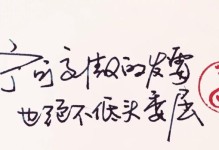 宁可高傲的发霉
也绝不低头委屈